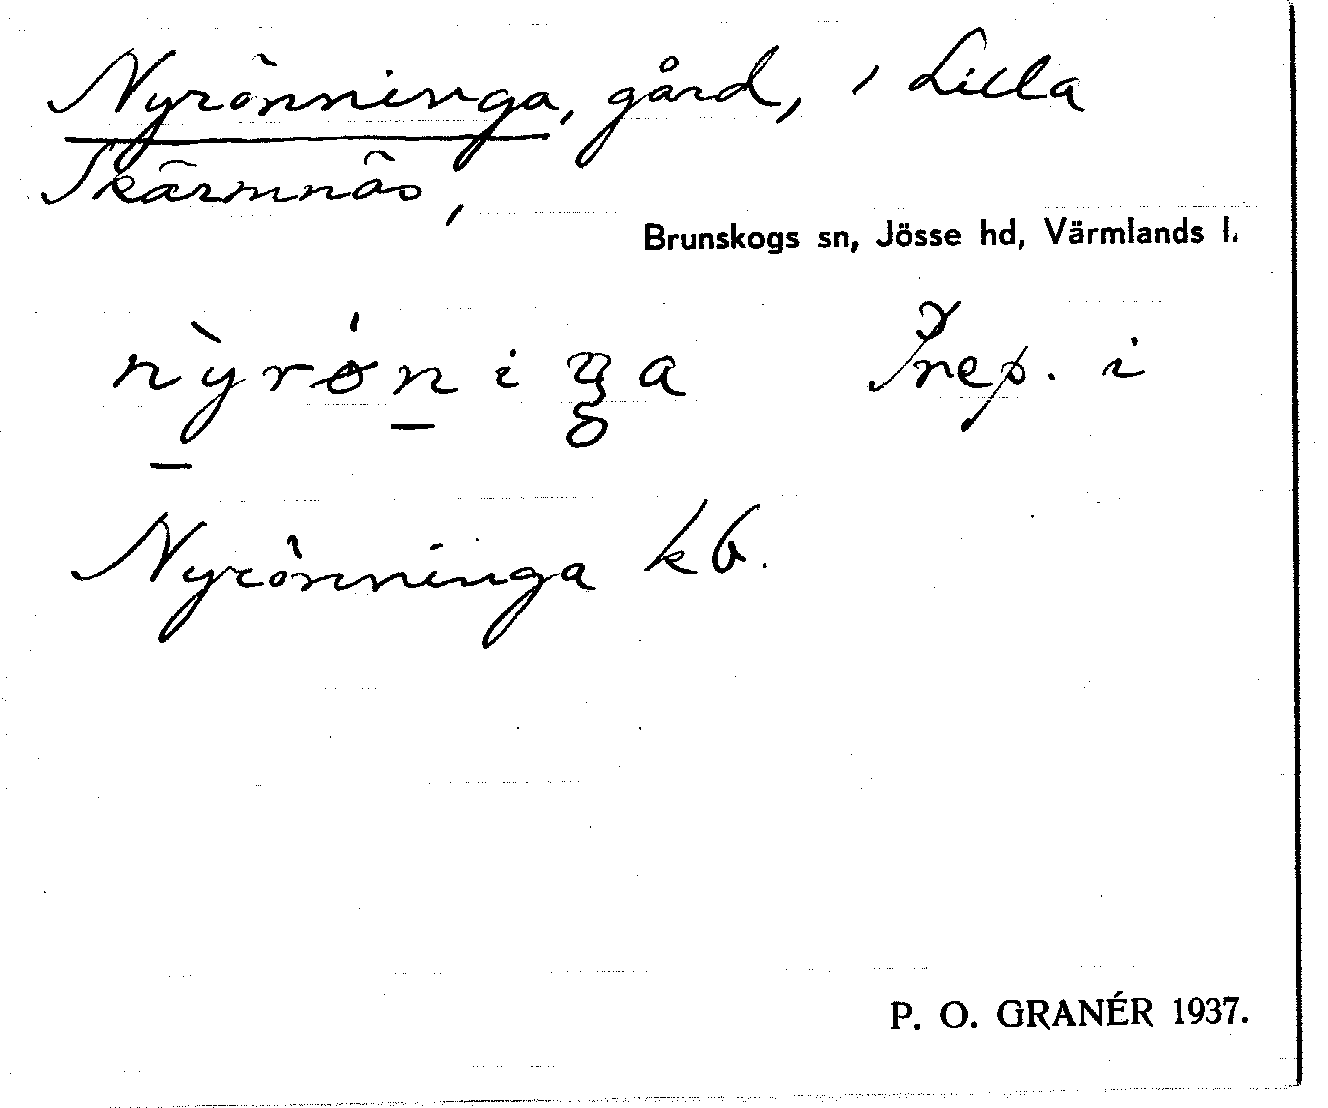 Nyrönninga, gård, i Lilla
Skärmnäs,
Brunskogs sn, Jösse hd, Värmlands l.
Prep. i
Nyrönninga kb.
P. O. GRANÉR 1937.